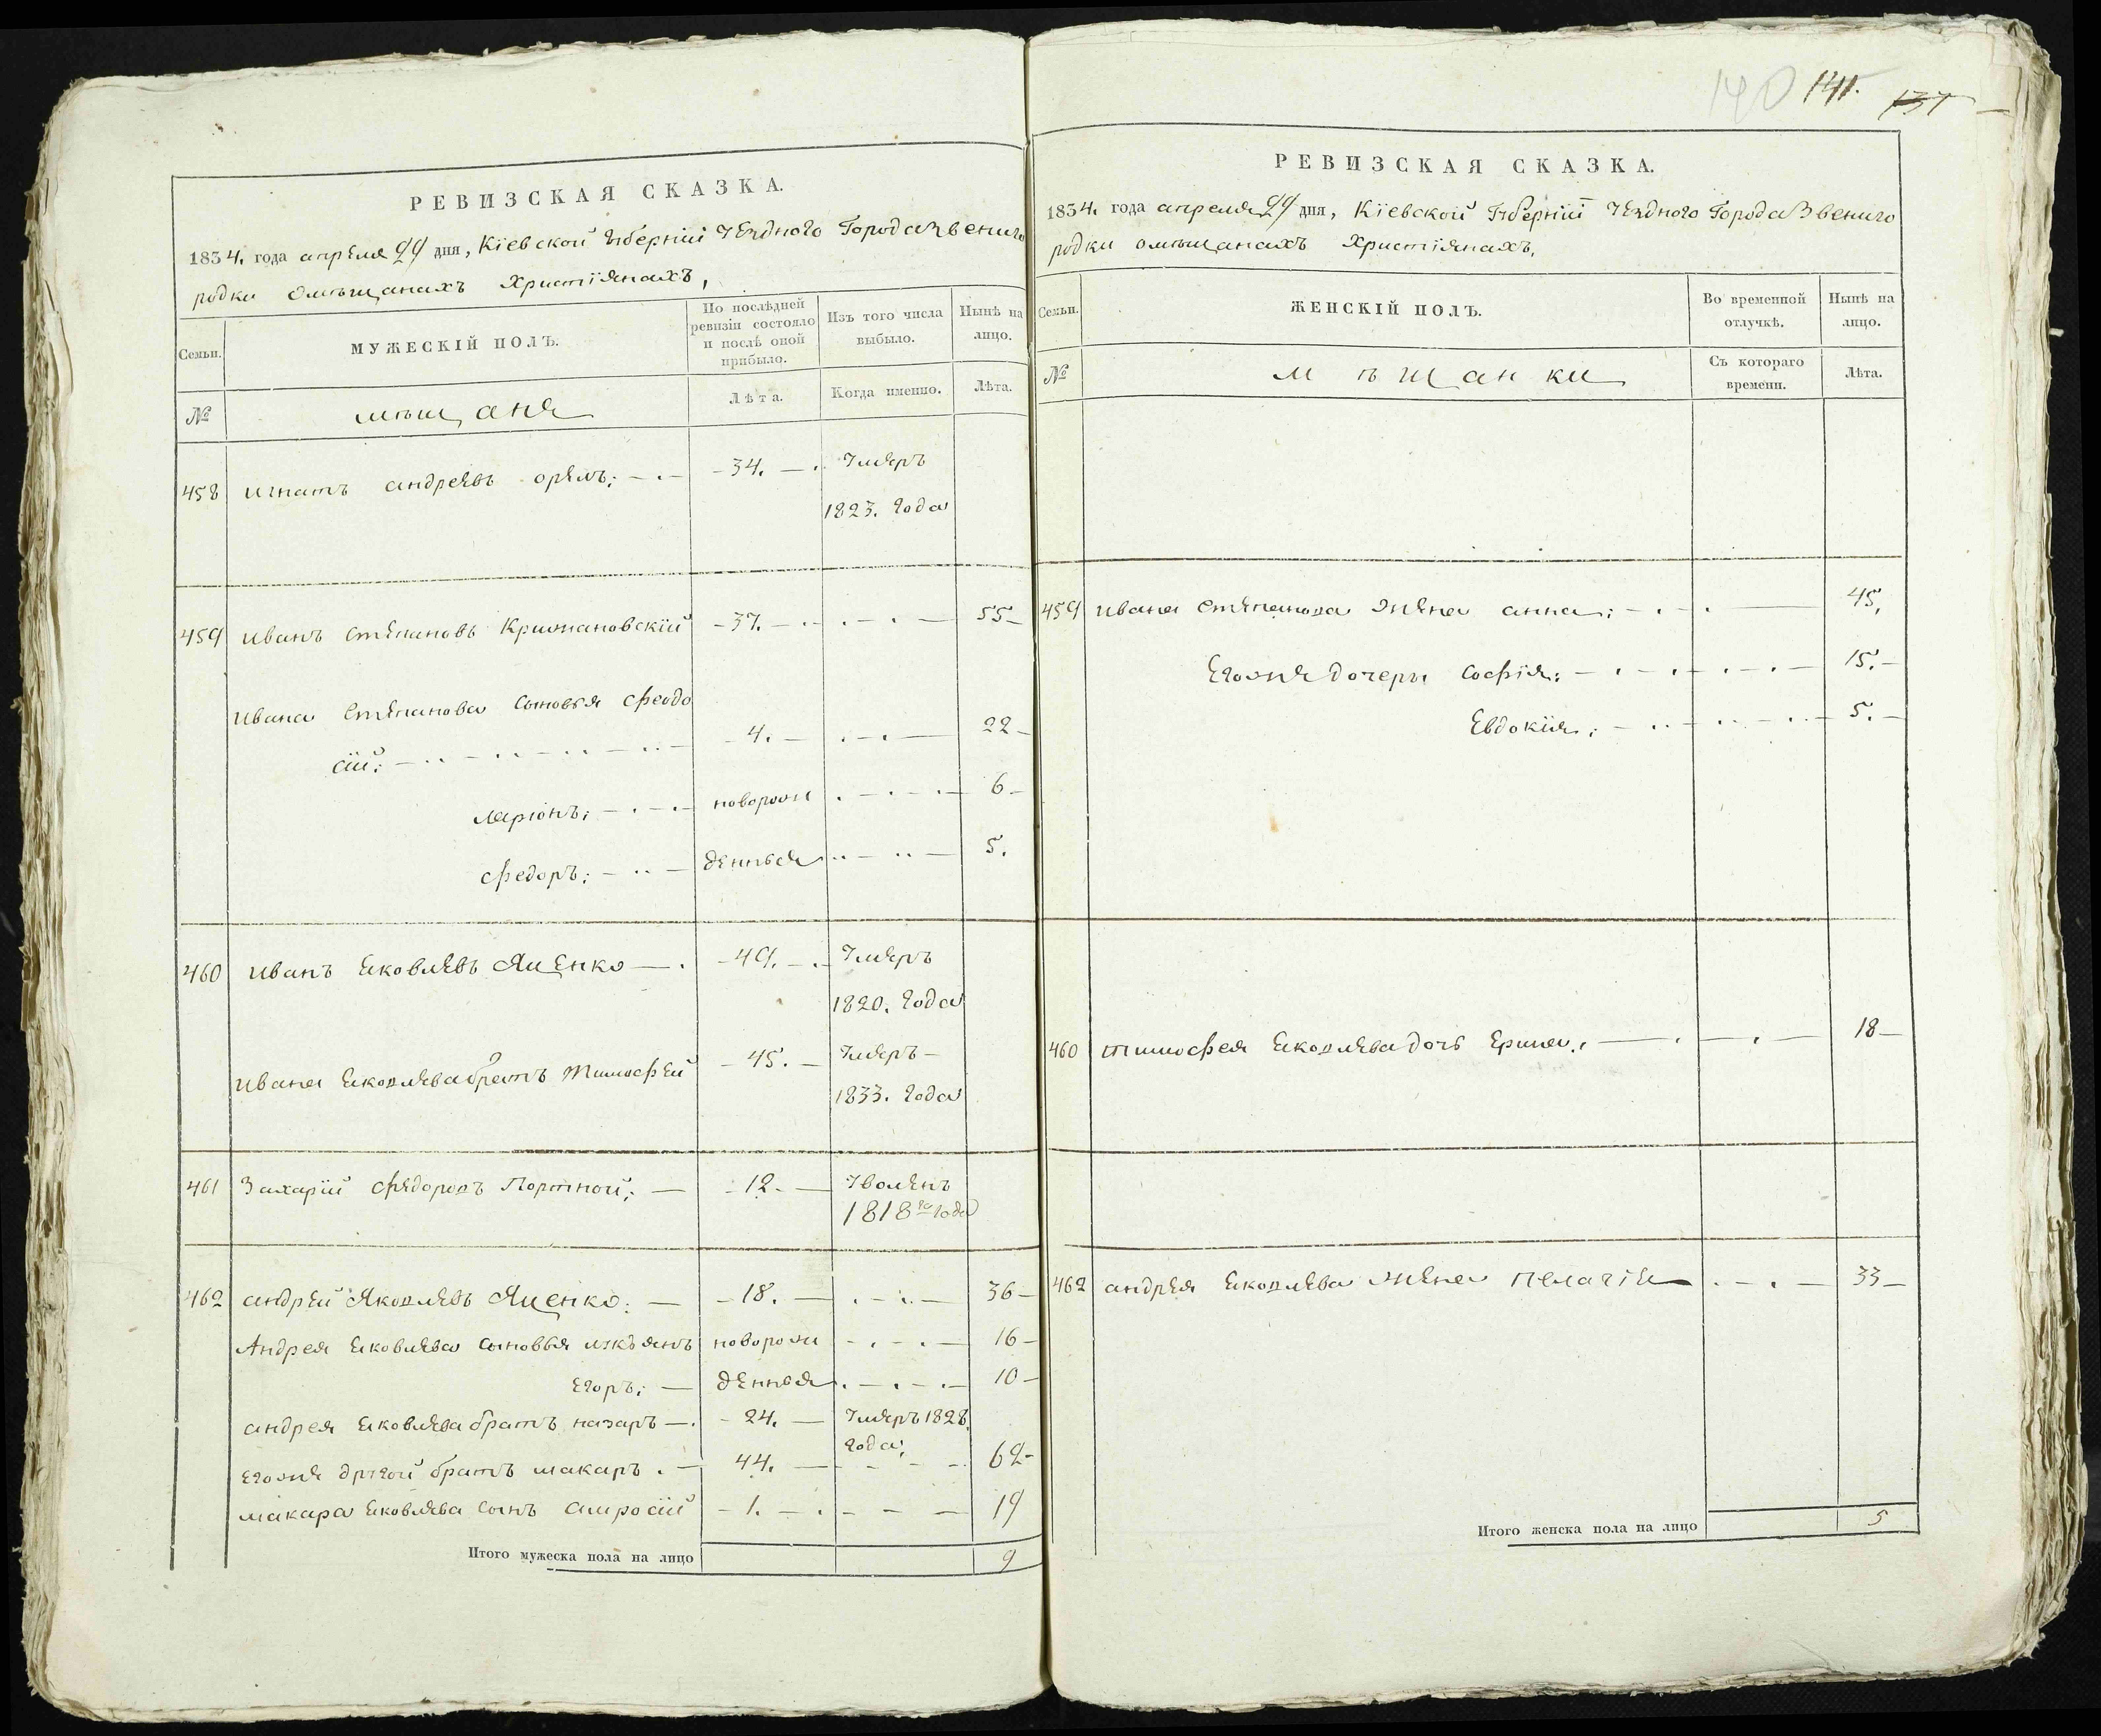 140 141. 137
РЕВИЗСКАЯ СКАЗКА.
1834. года апреля 29 дня, Кіевской Губерніи Уезднаго Города Звениго
родки Омѣщанахъ Христіянахъ,
Семьи.
МУЖЕСКІЙ ПОЛЪ.
По послѣдней ревизіи состояло и послѣ оной прибыло.
Изъ того числа выбыло.
Нынѣ на лицо.
№
мѣщаня
Лѣта.
Когда именно.
Лѣта.
458 игнатъ андреевъ орелъ: — 34. — Умеръ
1823. года
459 иванъ степановъ Крижановскій — 37. — 55
ивана степанова сыновья феодо
сій: — 4. — 22
ларіонъ: — новорож — 6
федоръ: — денныя — 5.
460 иванъ яковлевъ Яценко — 49. — Умеръ
1820. года
ивана яковлева братъ тимофей — 45. — Умеръ —
1833. года
461 Захарій федоровъ Портной; — 12. — Уволенъ
1818го года
462 андрей Яковлевъ Яценко: — 18. — 36
Андрея яковлева сыновья новорож — 16
егоръ: — денныя — 10
андрея яковлева братъ назаръ — 24. — Умеръ 1828.
года,
егожя другой братъ макаръ. — 44. — 62
макара яковлева сынъ амросій — 1. — 19
Итого мужеска пола на лицо 9
РЕВИЗСКАЯ СКАЗКА.
1834. года апреля 29 дня, Кіевской Губерніи Уезднаго Города Звениго
родки Омѣщанахъ Христіянахъ.
Семьи.
ЖЕНСКІЙ ПОЛЪ.
Во временной отлучкѣ.
Нынѣ на лицо.
№
мѣщанки
Съ котораго времени.
Лѣта.
459 ивана степанова жена анна: — 45.
Егожя дочери софія: — 15.
Евдокія: — 5.
460 тимофея яковлева дочь — 18
462 андрея яковлева жена пелагія — 33
Итого женска пола на лицо 5